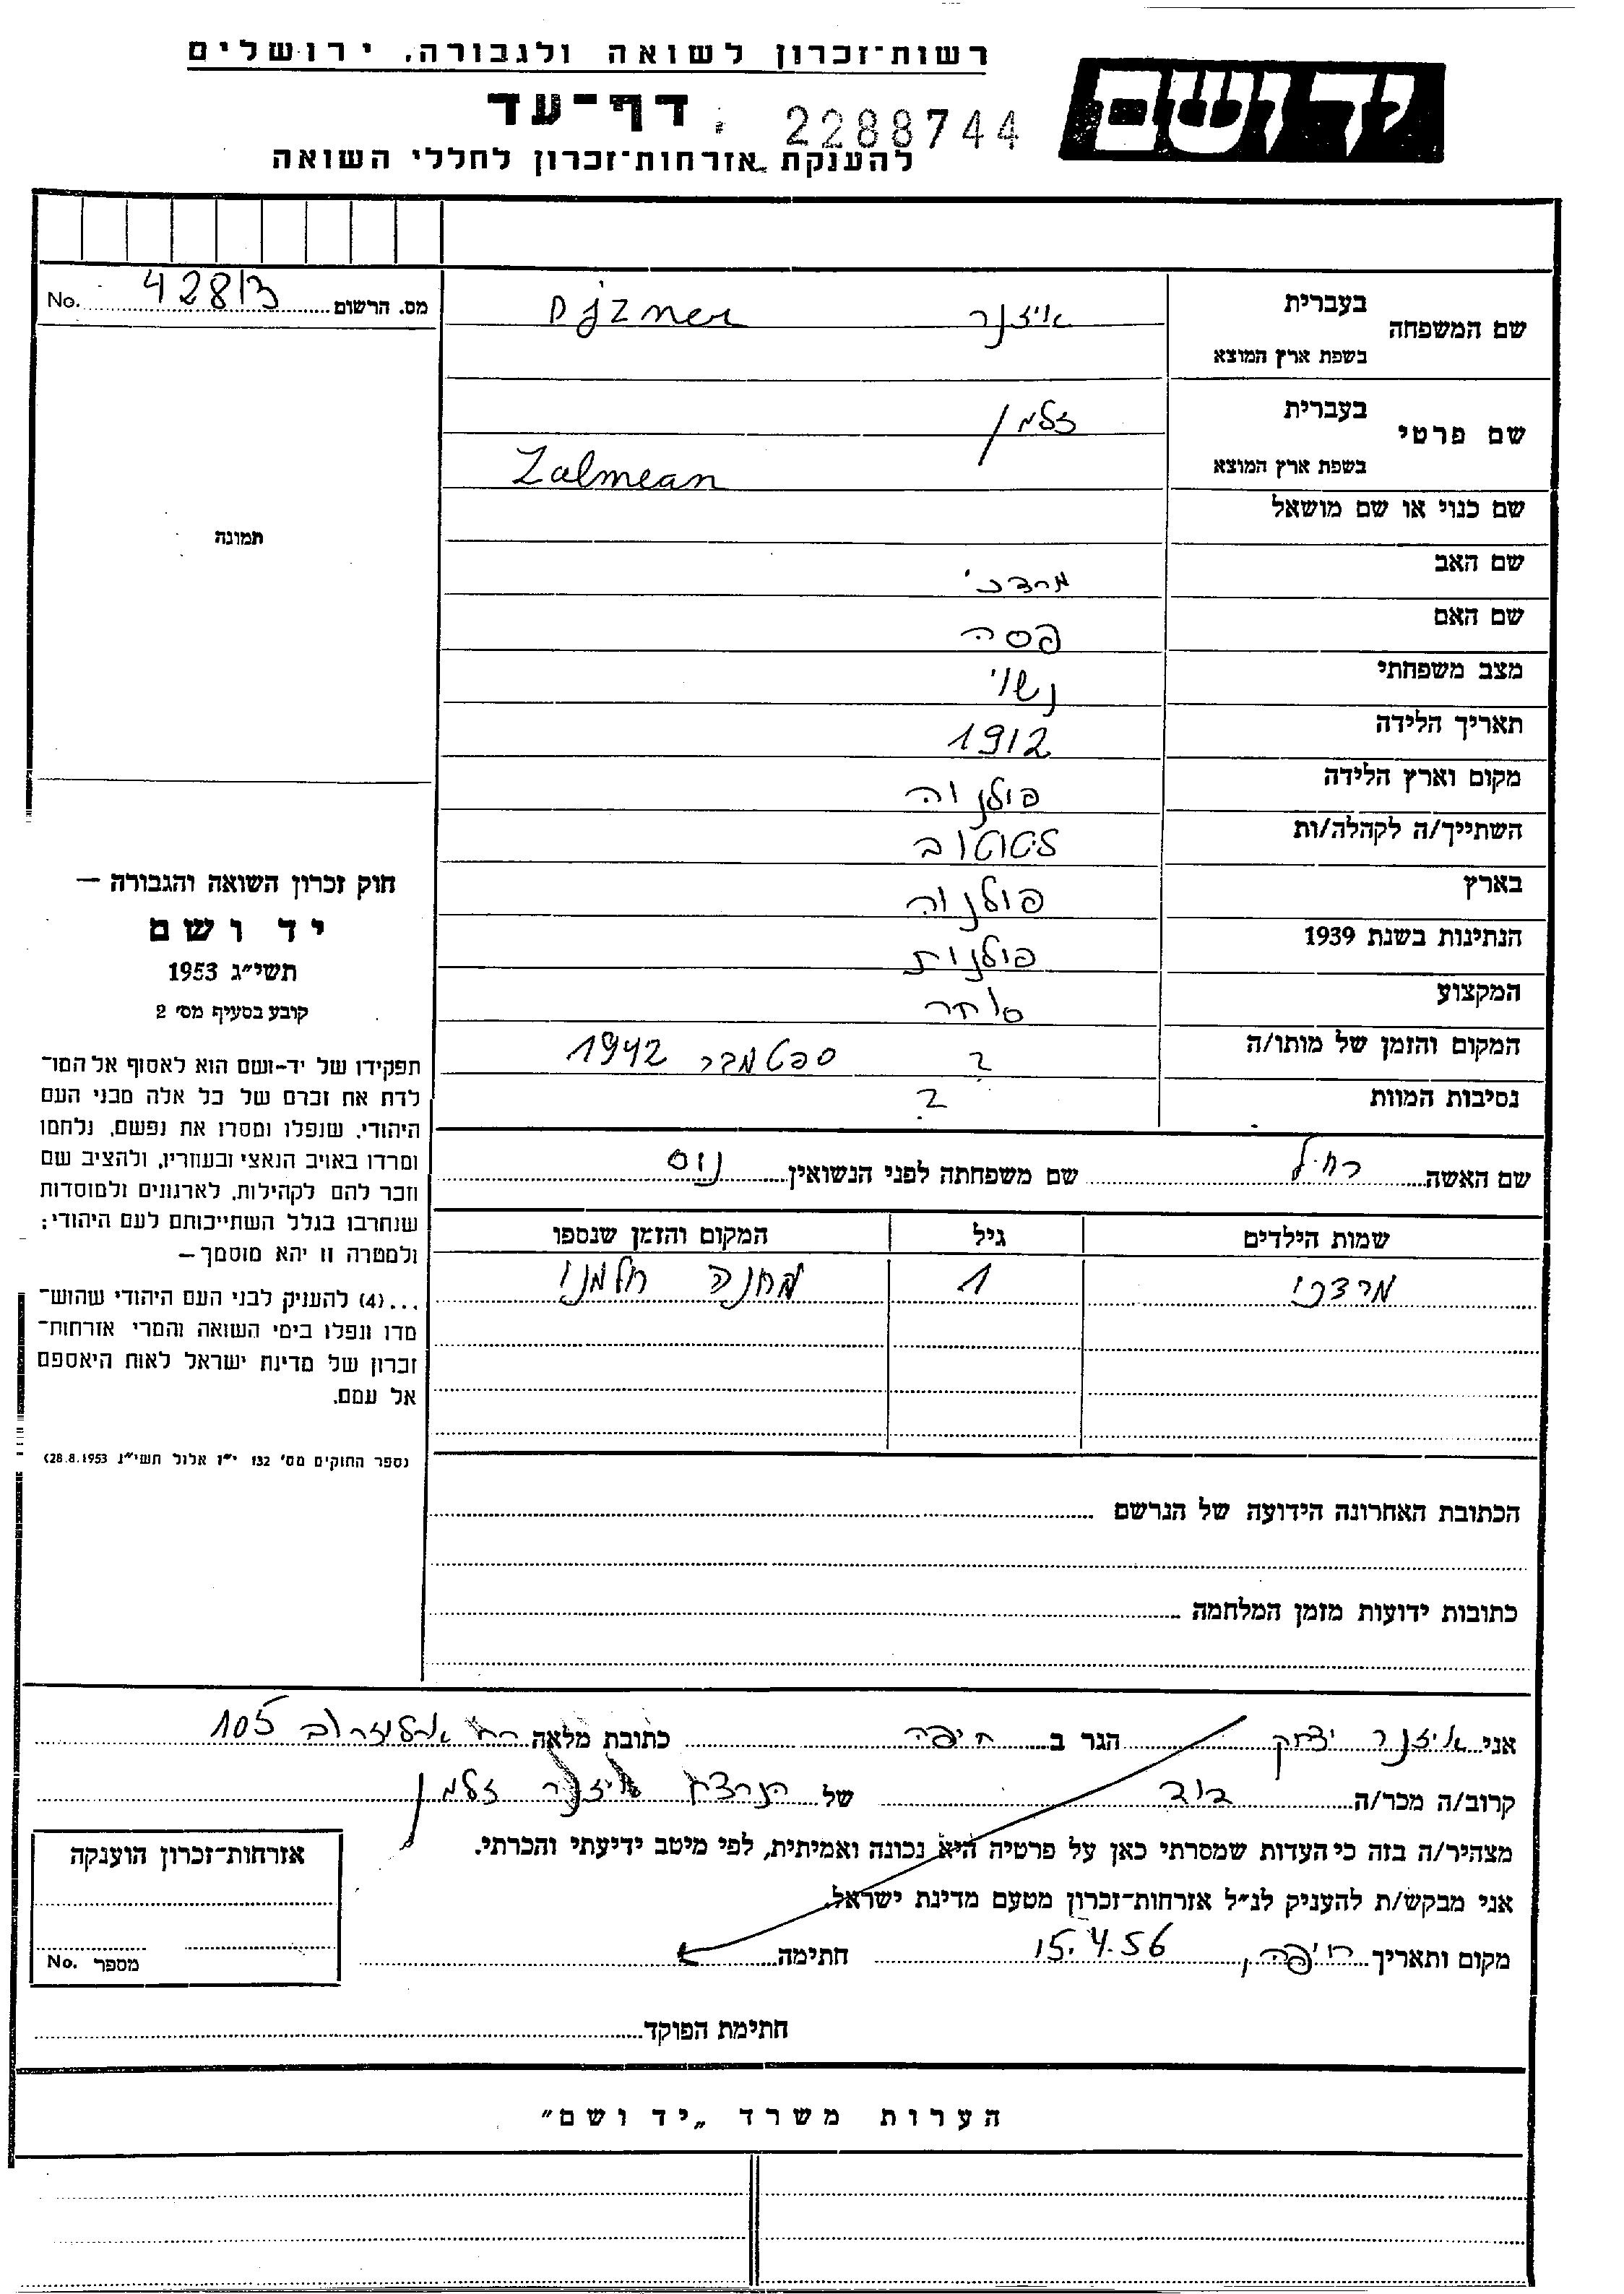 רשות־זכרון לשואה ולגבורה, ירושלים
יד ושם
דף־עד
2288744
להענקת אזרחות־זכרון לחללי השואה
מס. הרשום 42813 No.
שם המשפחה
בעברית איזנר Djzner
בשפת ארץ המוצא
שם פרטי
בעברית זלמן
בשפת ארץ המוצא Zalmean
שם כנוי או שם מושאל
שם האב מרדכי
שם האם פסה
מצב משפחתי נשוי
תאריך הלידה 1912
מקום וארץ הלידה פולניה
השתייך/ה לקהלה/ות
בארץ פולניה
הנתינות בשנת 1939 פולנית
המקצוע סוחר
המקום והזמן של מותו/ה ? ספטמבר 1942
נסיבות המוות ?
שם האשה רחל שם משפחתה לפני הנשואין
שמות הילדים גיל המקום והזמן שנספו
מרדכי 1 מחנה חלמנו
הכתובת האחרונה הידועה של הנרשם
כתובות ידועות מזמן המלחמה
תמונה
חוק זכרון השואה והגבורה —
יד ושם
תשי״ג 1953
קובע בסעיף מס׳ 2
תפקידו של יד-ושם הוא לאסוף אל המו־
לדת את זכרם של כל אלה מבני העם
היהודי, שנפלו ומסרו את נפשם, נלחמו
ומרדו באויב הנאצי ובעוזריו, ולהציב שם
וזכר להם לקהילות, לארגונים ולמוסדות
שנחרבו בגלל השתייכותם לעם היהודי;
ולמטרה זו יהא מוסמך —
...(4) להעניק לבני העם היהודי שהוש־
מדו ונפלו בימי השואה והמרי אזרחות־
זכרון של מדינת ישראל לאות היאספם
אל עמם.
(ספר החוקים מס׳ 132 י״ז אלול תשי״ג 28.8.1953)
אני איזנר יצחק הגר ב חיפה כתובת מלאה רח ארלוזרוב 105
קרוב/ה מכר/ה בן דוד של הנרצח איזנר זלמן
מצהיר/ה בזה כי העדות שמסרתי כאן על פרטיה היא נכונה ואמיתית, לפי מיטב ידיעתי והכרתי.
אני מבקש/ת להעניק לנ״ל אזרחות־זכרון מטעם מדינת ישראל.
מקום ותאריך חיפה, 15.4.56 חתימה
אזרחות־זכרון הוענקה
מספר No.
חתימת הפוקד
הערות משרד „יד ושם״